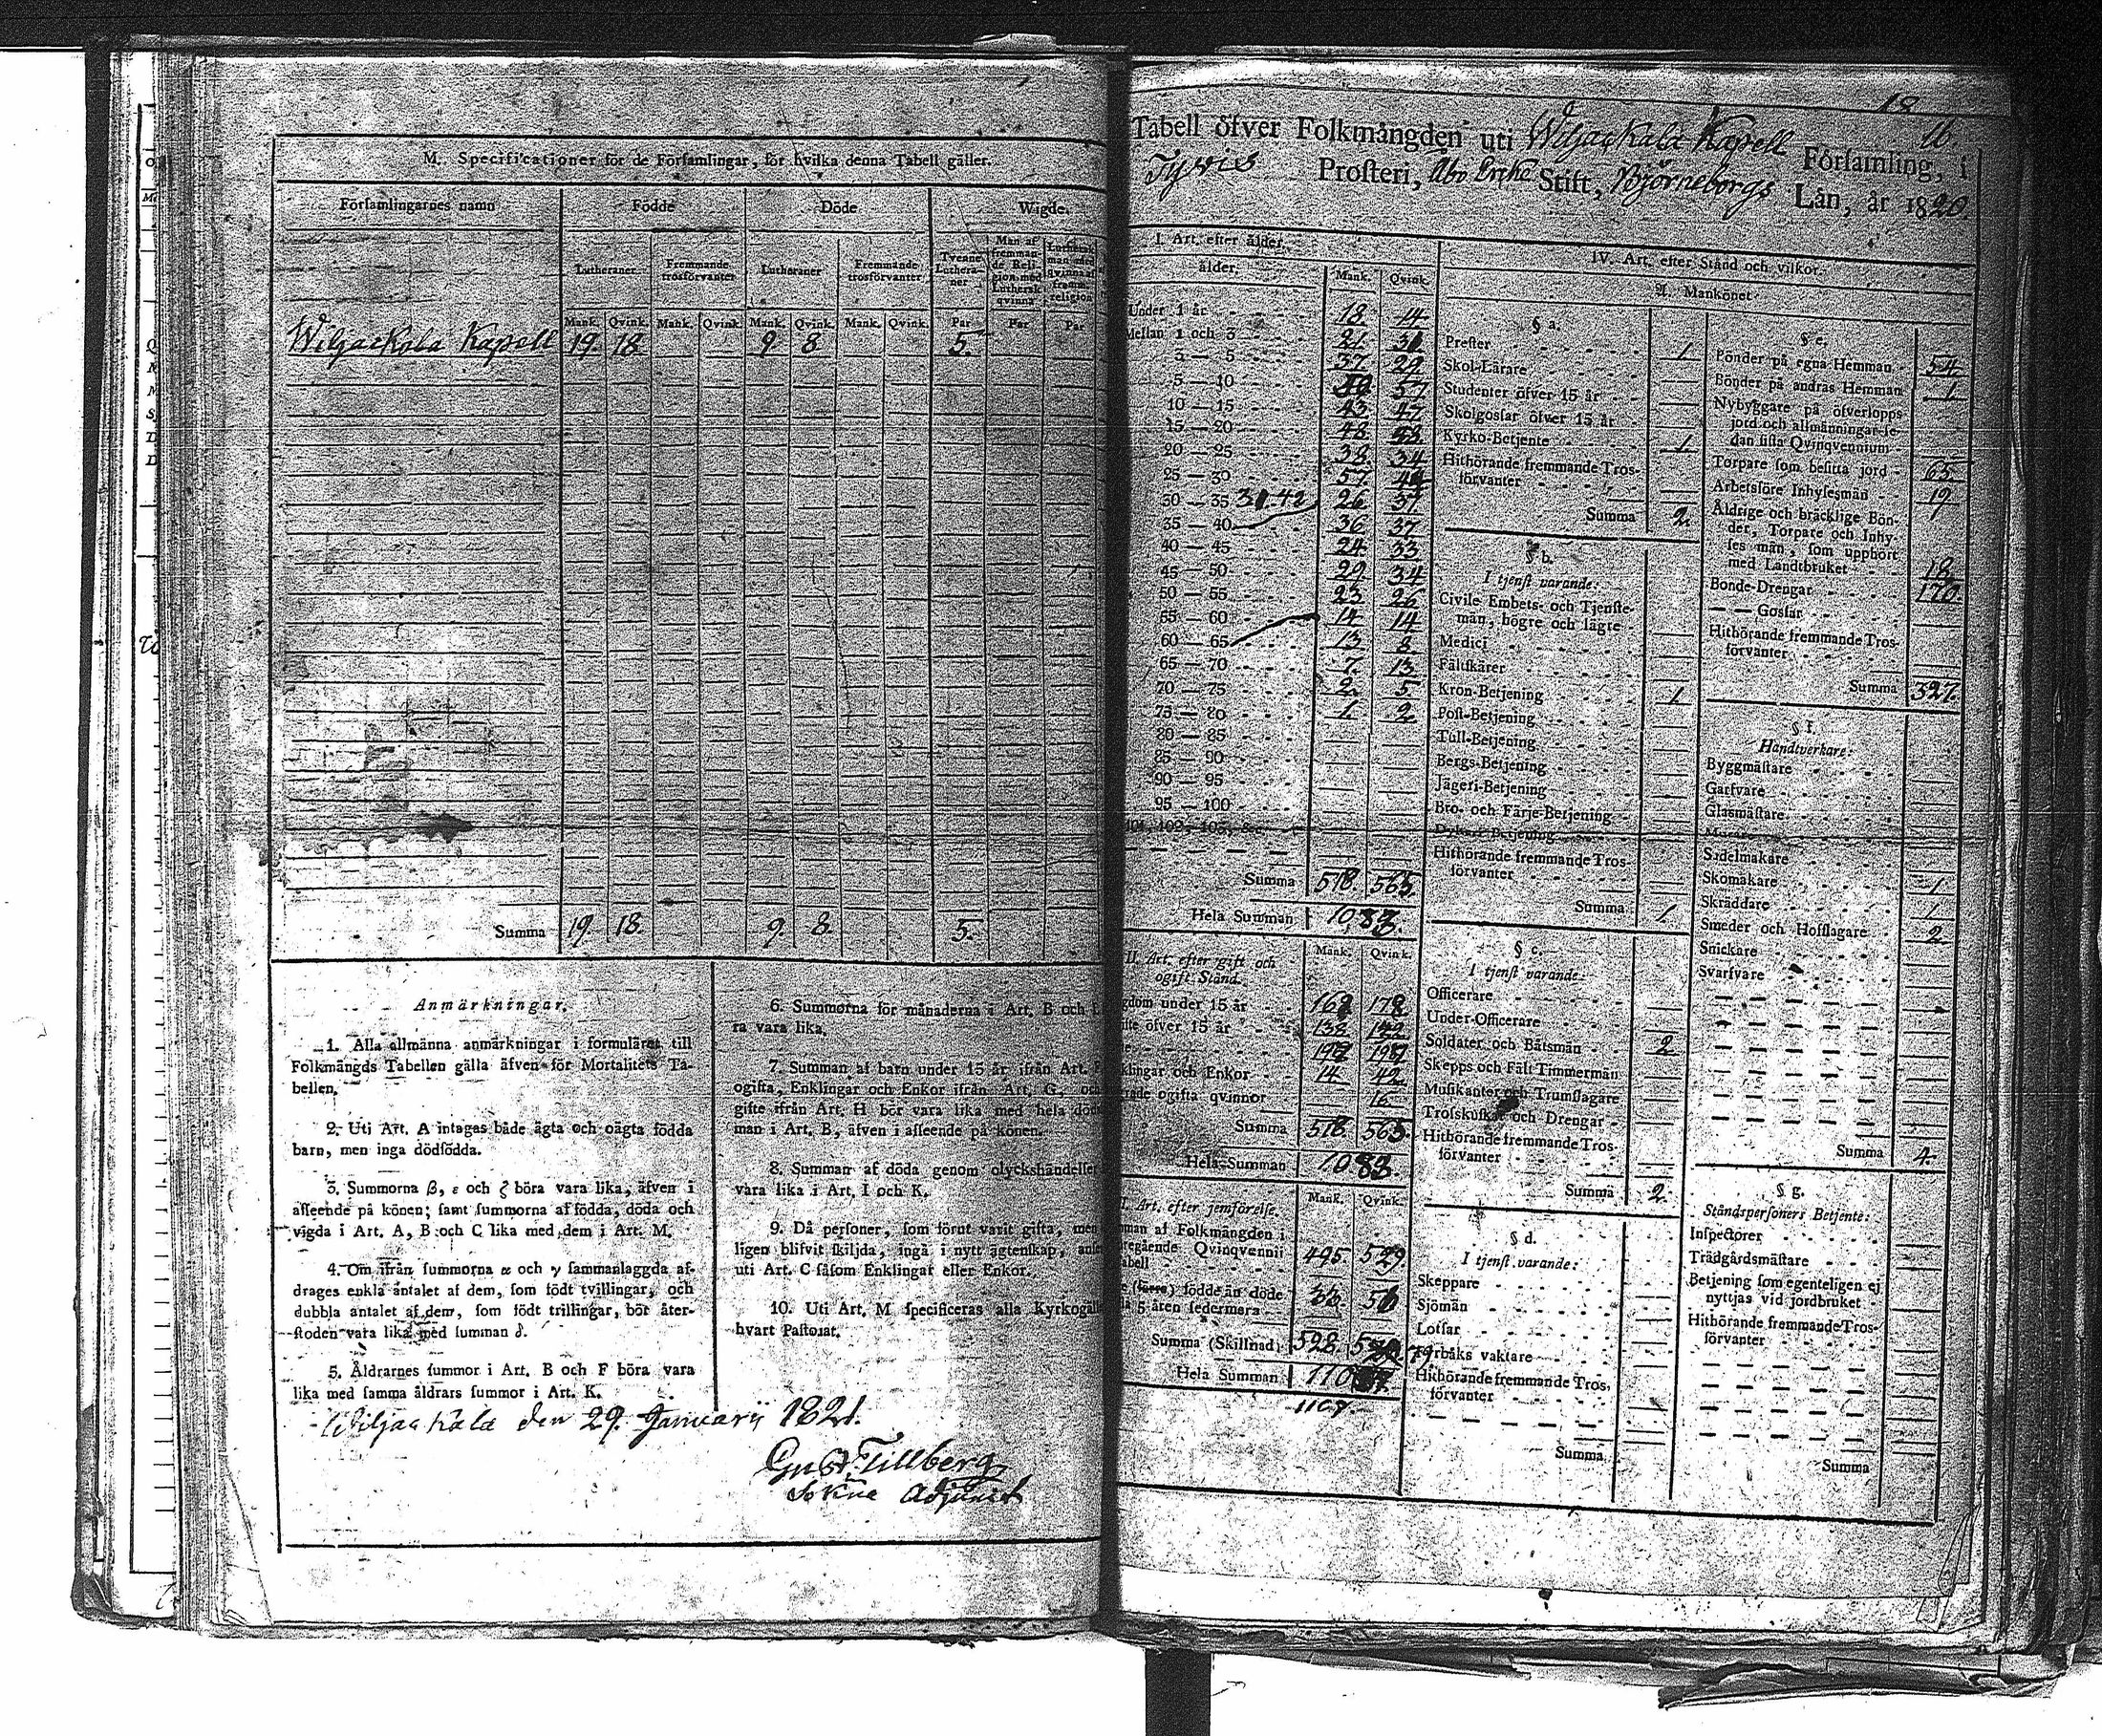 M. Specificationer för de Församlingar, för hvilka denna Tabell gäller.
Församlingarnes namn Födde Döde Wigde.
Lutheraner Fremmande trosförvanter Lutheraner Fremmande trosförvanter Tvenne Lutheraner Man af fremmande Religion med Luthersk qvinna Luthersk man med qvinna af fremm. religion
Mank. Qvink. Mank. Qvink. Mank. Qvink. Mank. Qvink. Par Par Par
Wiljackala Kapell 19. 18. 9 8 5.
Summa 19. 18. 9. 8. 5.
Anmärkningar.
1. Alla allmänna anmärkningar i formuläret till
Folkmängds Tabellen gälla äfven för Mortalitets Ta-
bellen.
2. Uti Art. A intages både ägta och oägta födda
barn, men inga dödfödda.
3. Summorna β, ε och ζ böra vara lika, äfven i
afseende på könen; samt summorna af födda, döda och
vigda i Art. A, B och C lika med dem i Art. M.
4. Om ifrån summorna α och γ sammanlaggda af-
drages enkla antalet af dem, som födt tvillingar, och
dubbla antalet af dem, som födt trillingar, bör åter-
stoden vara lika med summan δ.
5. Åldrarnes summor i Art. B och F böra vara
lika med samma åldrars summor i Art. K.
6. Summorna för månaderna i Art. B och
ra vara lika.
7. Summan af barn under 15 år ifrån Art.
ogifta, Enklingar och Enkor ifrån Art. G, och
gifte ifrån Art. H bör vara lika med hela döda
man i Art. B, äfven i afseende på könen.
8. Summan af döda genom olyckshändelser
vara lika i Art. I och K.
9. Då personer, som förut varit gifta, men
ligen blifvit skiljda, ingå i nytt ägtenskap,
uti Art. C såsom Enklingar eller Enkor.
10. Uti Art. M specificeras alla Kyrkogäll
hvart Pastorat.
Wiljackala den 29. Januarii 1821.
Gust. Tillberg
Sokne Adjunct
18
16.
Tabell öfver Folkmängden uti Wiljackala Kapell Församling, i
Tyrvis Prosteri, Åbo Erke Stift, Björneborgs Län, år 1820.
I. Art. efter ålder.
ålder. Mank. Qvink.
Under 1 år 18. 14
Mellan 1 och 3 21. 31
3 — 5 37. 29
5 — 10 57
10 — 15 43. 47
15 — 20 48.
20 — 25 38. 34
25 — 30 57.
30 — 35 31.42 26 37
35 — 40 36 37
40 — 45 24 33
45 — 50 29. 34
50 — 55 23 26
55 — 60 14. 14
60 — 65 13 8
65 — 70 7. 13
70 — 75 2. 5
75 — 80 1. 2
80 — 85
85 — 90
90 — 95
95 — 100
101, 102, 103, &c.
Summa 518. 565.
Hela Summan 1083.
II. Art. efter gift och
ogift Stånd. Mank. Qvink.
gdom under 15 år
öfver 15 år 138
klingar och Enkor 14. 42
rade ogifta qvinnor 16
Summa 518. 565.
Hela Summan 1083.
Art. efter jemförelse. Mank. Qvink.
man af Folkmängden i
regående Qvinqvennii
abell 495. 529
födde än döde
5 åren sedermera 33.
Summa (Skillnad) 528.
Hela Summan
1107
IV. Art. efter Stånd och vilkor.
A. Mankönet
§ a.
Prester 1.
Skol-Lärare
Studenter öfver 15 år
Skolgossar öfver 15 år
Kyrko-Betjente 1.
Hithörande fremmande Tros-
förvanter
Summa 2.
§ b.
I tjenst varande:
Civile Embets- och Tjenste-
män, högre och lägre
Medici
Fältskärer
Kron-Betjening 1.
Post-Betjening
Tull-Betjening
Bergs-Betjening
Jägeri-Betjening
Bro- och Färje-Betjening
Hithörande fremmande Tros-
förvanter
Summa 1.
§ c.
I tjenst varande:
Officerare
Under-Officerare
Soldater och Båtsmän 2
Skepps och Fält Timmermän
Musikanter och Trumslagare
Trosskuskar och Drengar
Hithörande fremmande Tros-
förvanter
Summa 2
§ d.
I tjenst varande:
Skeppare
Sjömän
Lotsar
Fyrbåks vaktare
Hithörande fremmande Tros-
förvanter
Summa
§ e.
Bönder på egna Hemman 54.
Bönder på andras Hemman 1.
Nybyggare på öfverlopps-
jord och allmänningar se-
dan sista Qvinqvennium
Torpare som besitta jord 65.
Arbetsföre Inhysesmän 19
Åldrige och bräcklige Bön-
der, Torpare och Inhy-
ses män, som upphört
med Landtbruket 18.
Bonde-Drengar 170.
— — Gossar
Hithörande fremmande Tros-
förvanter
Summa 327.
§ f.
Handtverkare:
Byggmästare
Garfvare
Glasmästare
Murare
Sadelmakare
Skomakare 1
Skräddare 1
Smeder och Hofslagare 2
Snickare
Svarfvare
Summa 4.
§ g.
Ståndspersoners Betjente:
Inspectorer
Trädgårdsmästare
Betjening som egenteligen ej
nyttjas vid jordbruket
Hithörande fremmande Tros-
förvanter
Summa